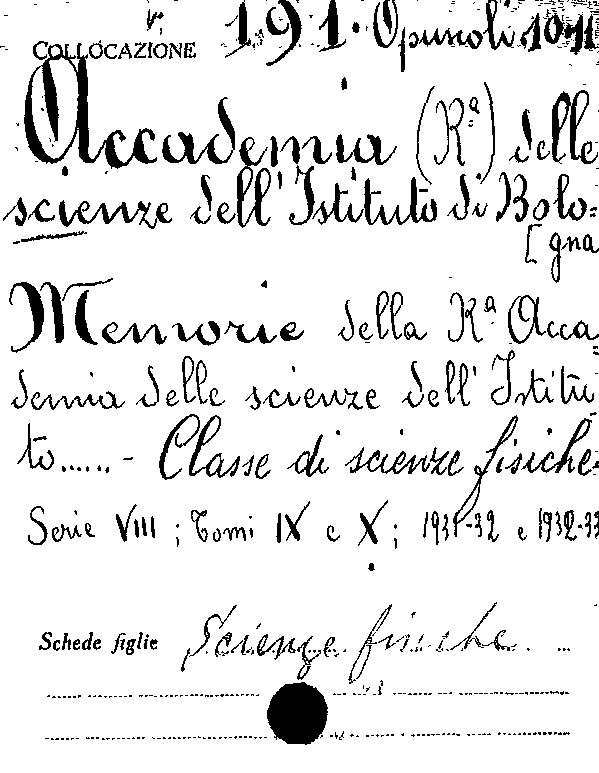 COLLOCAZIONE 191. Opuscoli
Accademia (Rª) delle
scienze dell' Istituto di Bolo=
[gna
Memorie della Rª Acca=
demia delle scienze dell' Istitu=
to......- Classe di scienze fisiche.
Serie VIII ; Tomi IX e X ; 1931-32 e 1932-33
Schede figlie Scienze fisiche. ...